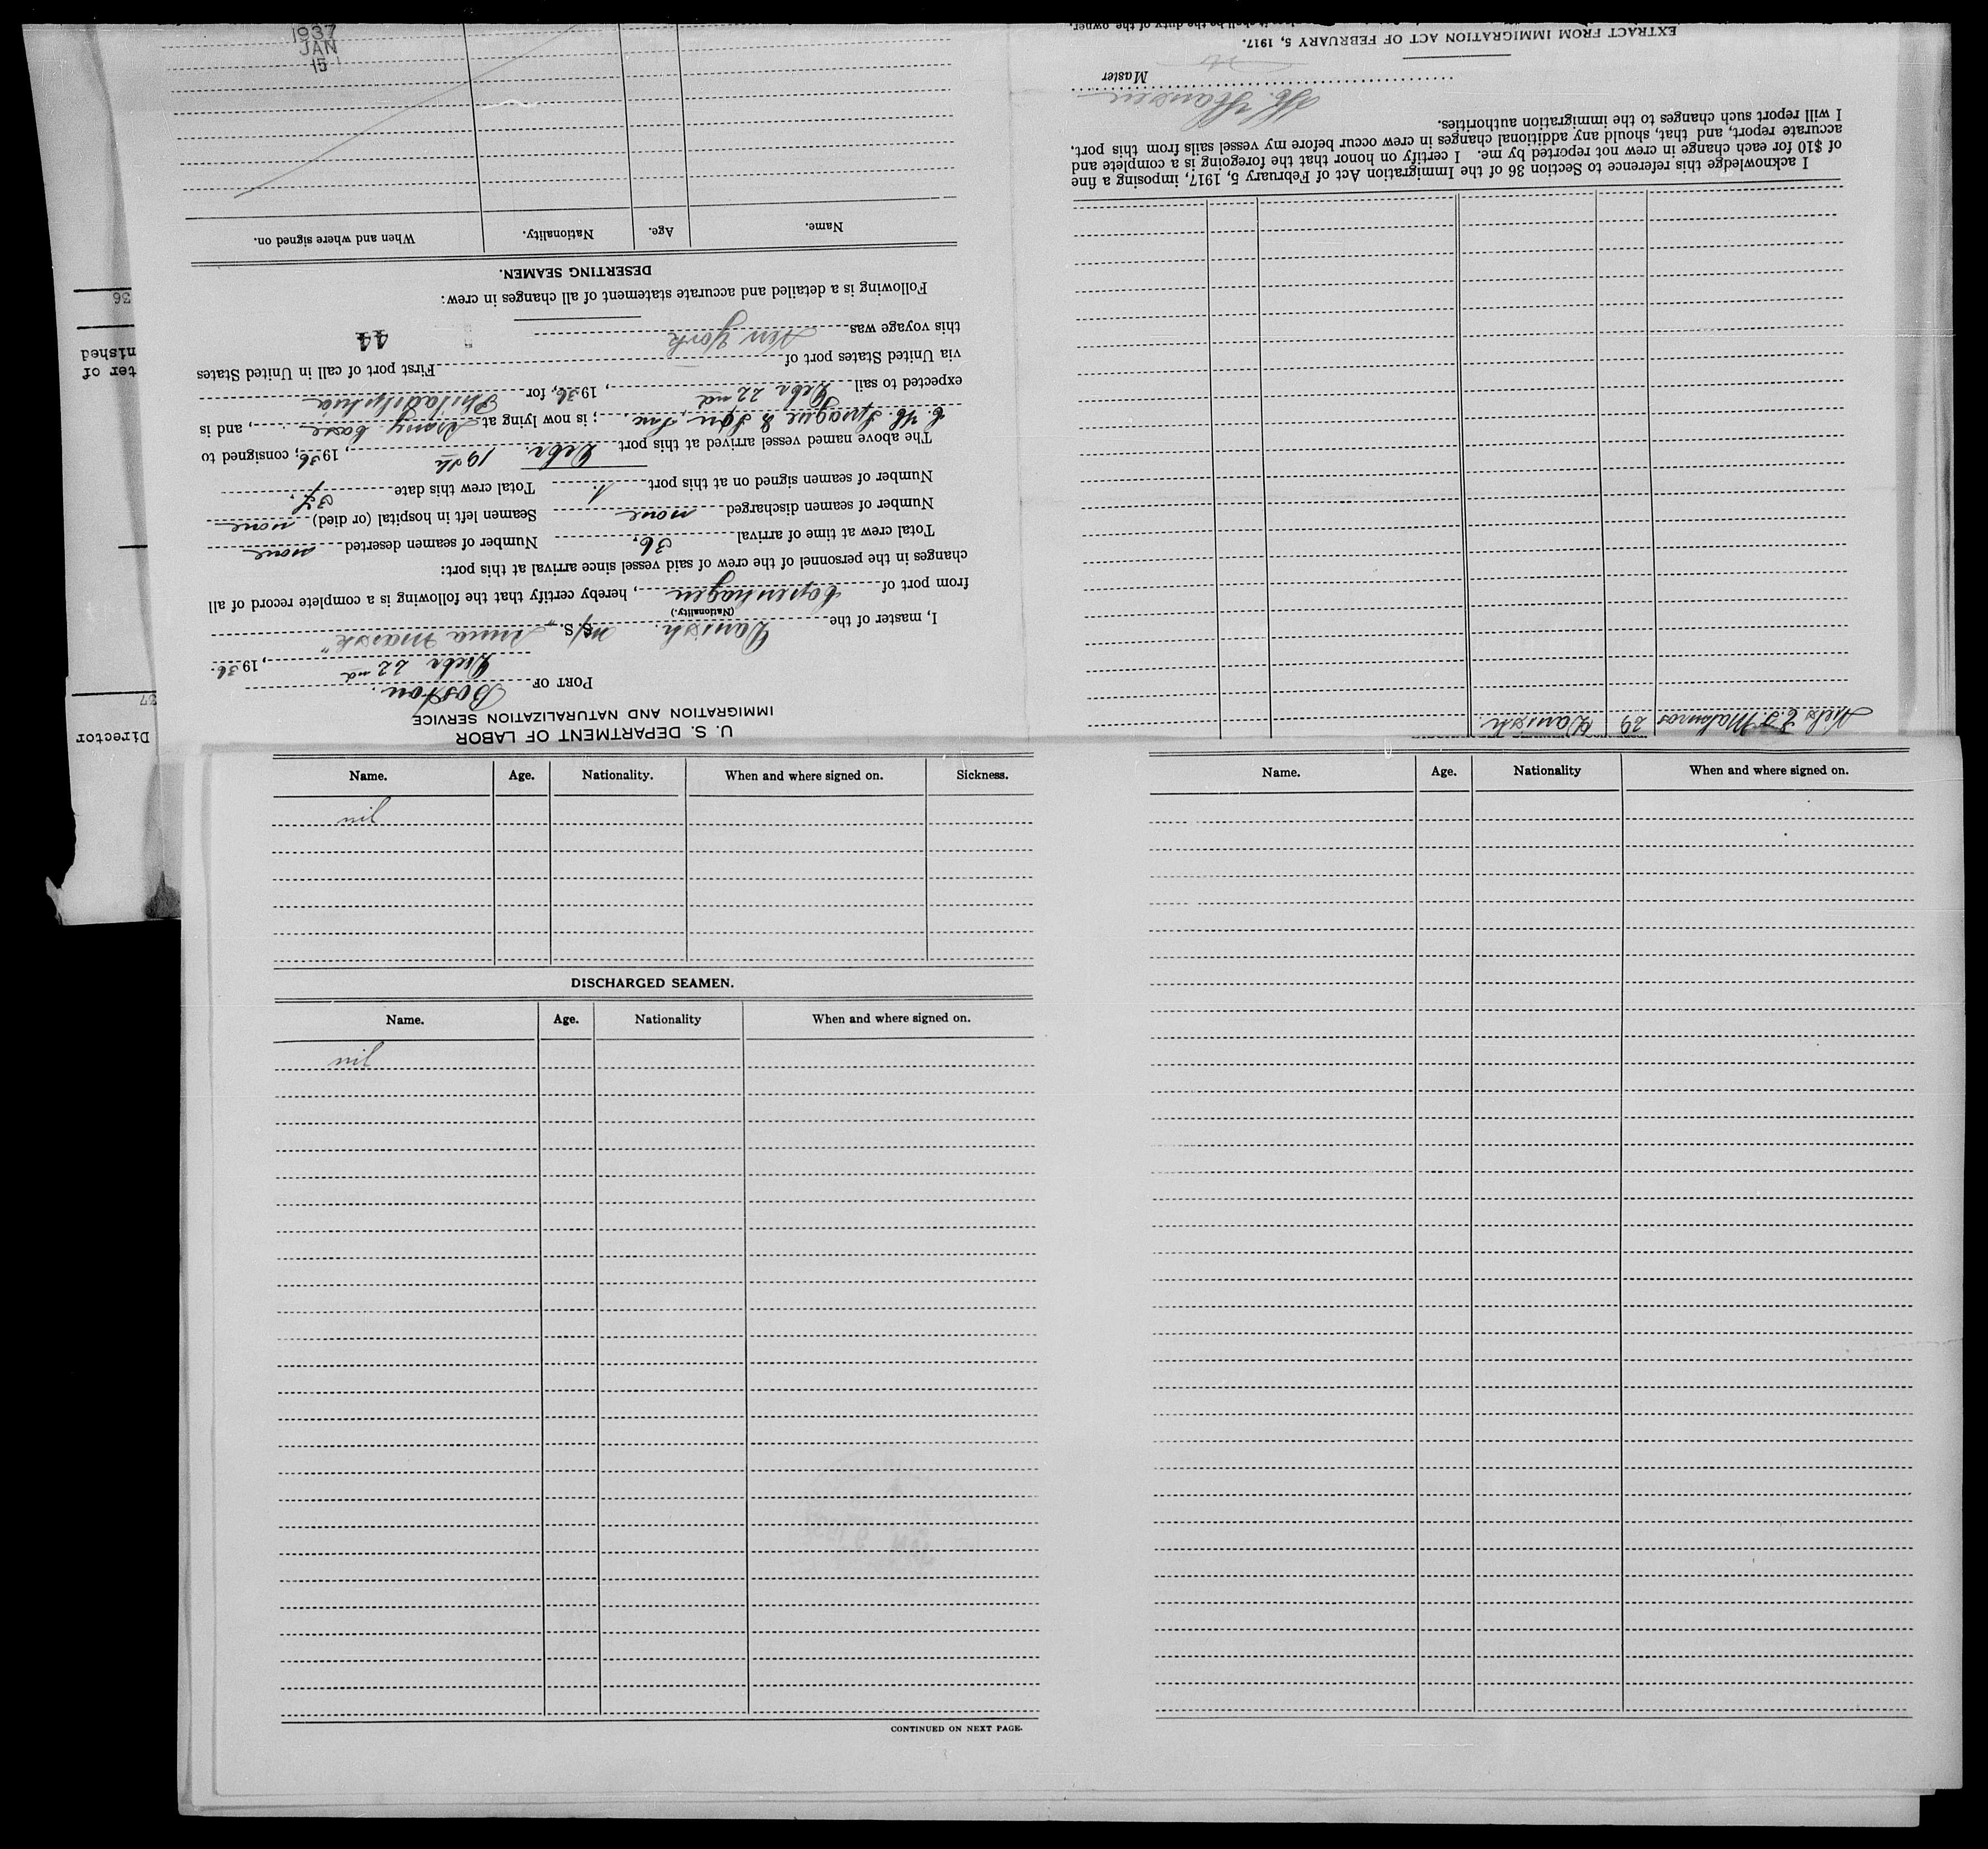 U. S. DEPARTMENT OF LABOR
IMMIGRATION AND NATURALIZATION SERVICE
PORT OF Boston.
Decbr 22nd, 1936.
I, master of the Danish. M/S. "Anna Mærsk"
(Nationality.)
from port of Copenhagen, hereby certify that the following is a complete record of all
changes in the personnel of the crew of said vessel since arrival at this port:
Total crew at time of arrival 36. Number of seamen deserted none
Number of seamen discharged none Seamen left in hospital (or died) none
Number of seamen signed on at this port 1. Total crew this date 37.
The above named vessel arrived at this port Debr. 19th, 1936; consigned to
C. H. Sprague & Son, Inc; is now lying at Army base, and is
expected to sail Debr 22nd, 1936, for Philadelphia
via United States port of First port of call in United States
this voyage was New York
44
Following is a detailed and accurate statement of all changes in crew:
DESERTING SEAMEN.
Name. Age. Nationality. When and where signed on.
15
JAN
1937
Niels Malmros 29 Danish.
I acknowledge this reference to Section 36 of the Immigration Act of February 5, 1917, imposing a fine
of $10 for each change in crew not reported by me. I certify on honor that the foregoing is a complete and
accurate report, and that, should any additional changes in crew occur before my vessel sails from this port,
I will report such changes to the immigration authorities.
Hansen
Master
EXTRACT FROM IMMIGRATION ACT OF FEBRUARY 5, 1917.
it shall be the duty of the owner,
36
nished
ter of
37
Director
Name. Age. Nationality. When and where signed on. Sickness.
nil
DISCHARGED SEAMEN.
Name. Age. Nationality When and where signed on.
nil
CONTINUED ON NEXT PAGE.
Name. Age. Nationality When and where signed on.